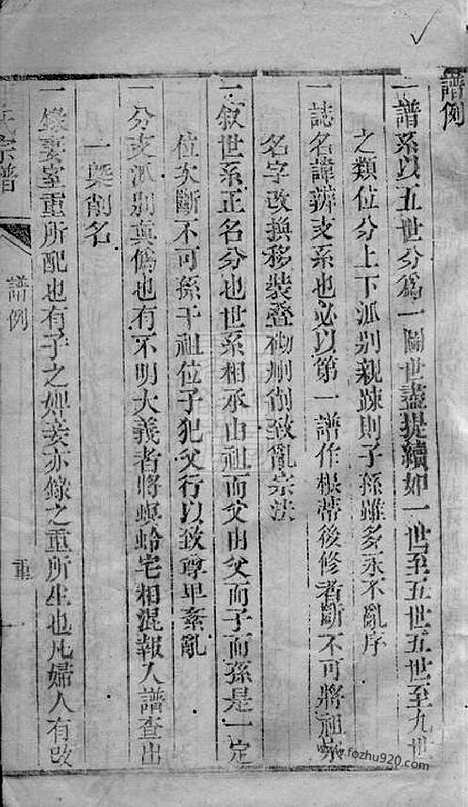 譜例
一譜系以五世分爲一圖世盡提續如一世至五世五世至九世
之類位分上下派别親踈則子孫雖多永不亂序
一誌名諱辨支系也必以第一譜作根蒂後修者斷不可將祖宗
名字改換移裝叠砌刪削致亂宗法
一叙世系正名分也世系相承由祖而父由父而子而孫是一定
位次斷不可孫于祖位子犯父行以致尊卑紊亂
一分支派别真僞也有不明大義者將螟蛉宅相混報入譜查出
一槩削名
一錄妻室重所配也有子之婢妾亦錄之重所生也凡婦人有改
氏宗譜
譜例
重
一
www.fozhu920.com